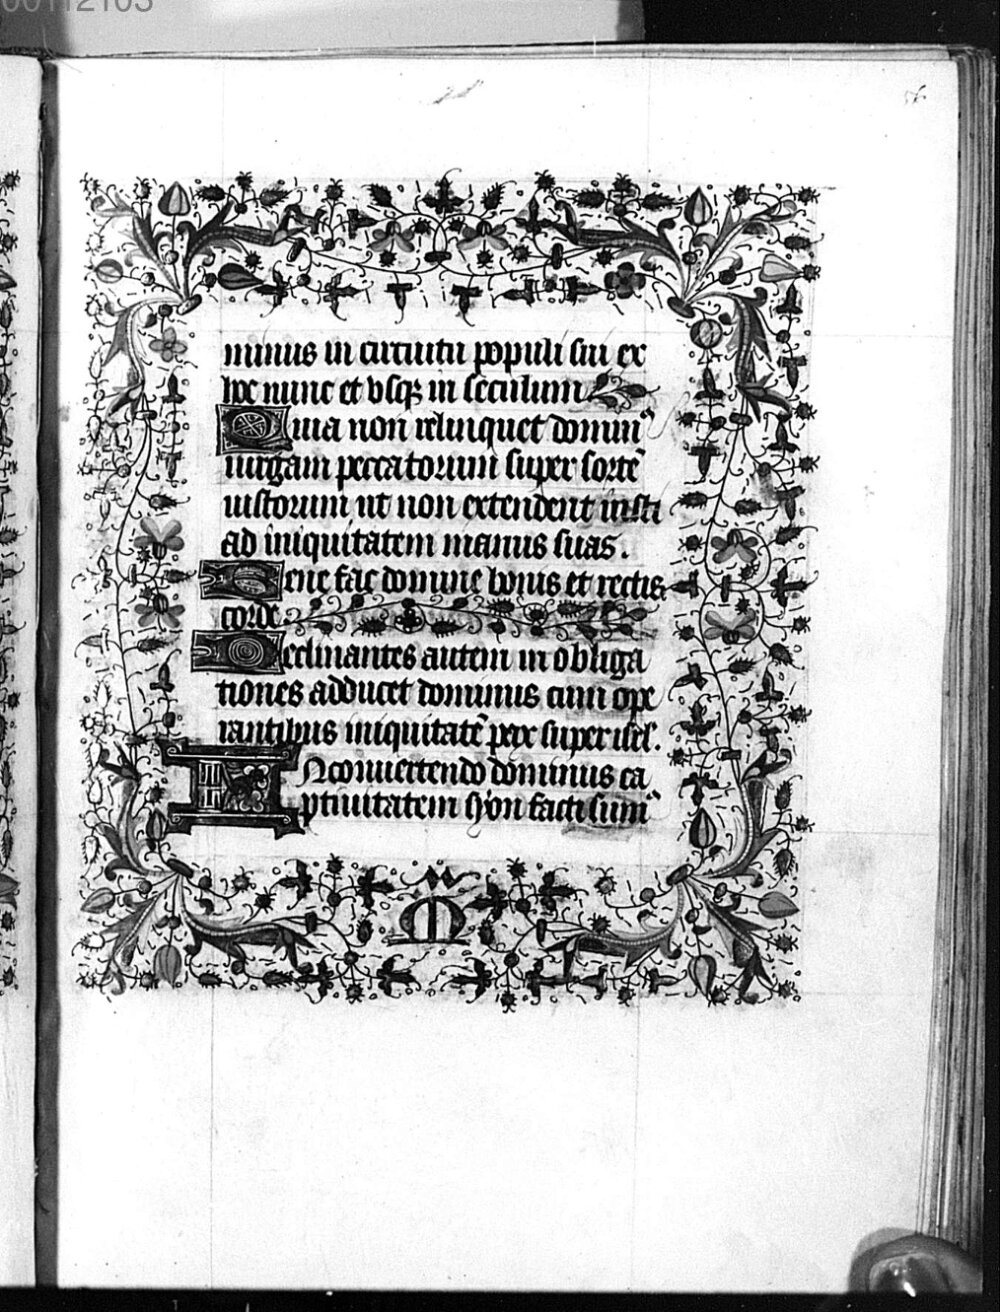 00112103
56
minus in circuitu populi sui ex
hoc nunc et vsqʒ in seculum
Quia non relinquet domin⁹
uirgam peccatorum super sortē
iustorum ut non extendent iusti
ad iniquitatem manus suas.
Bene fac domine bonis et rectis
corde
Declinantes autem in obliga
tiones adducet dominus cum ope
rantibus iniquitatē pax super isľ.
IN conuertendo dominus ca
ptiuitatem syon facti sum⁹
M